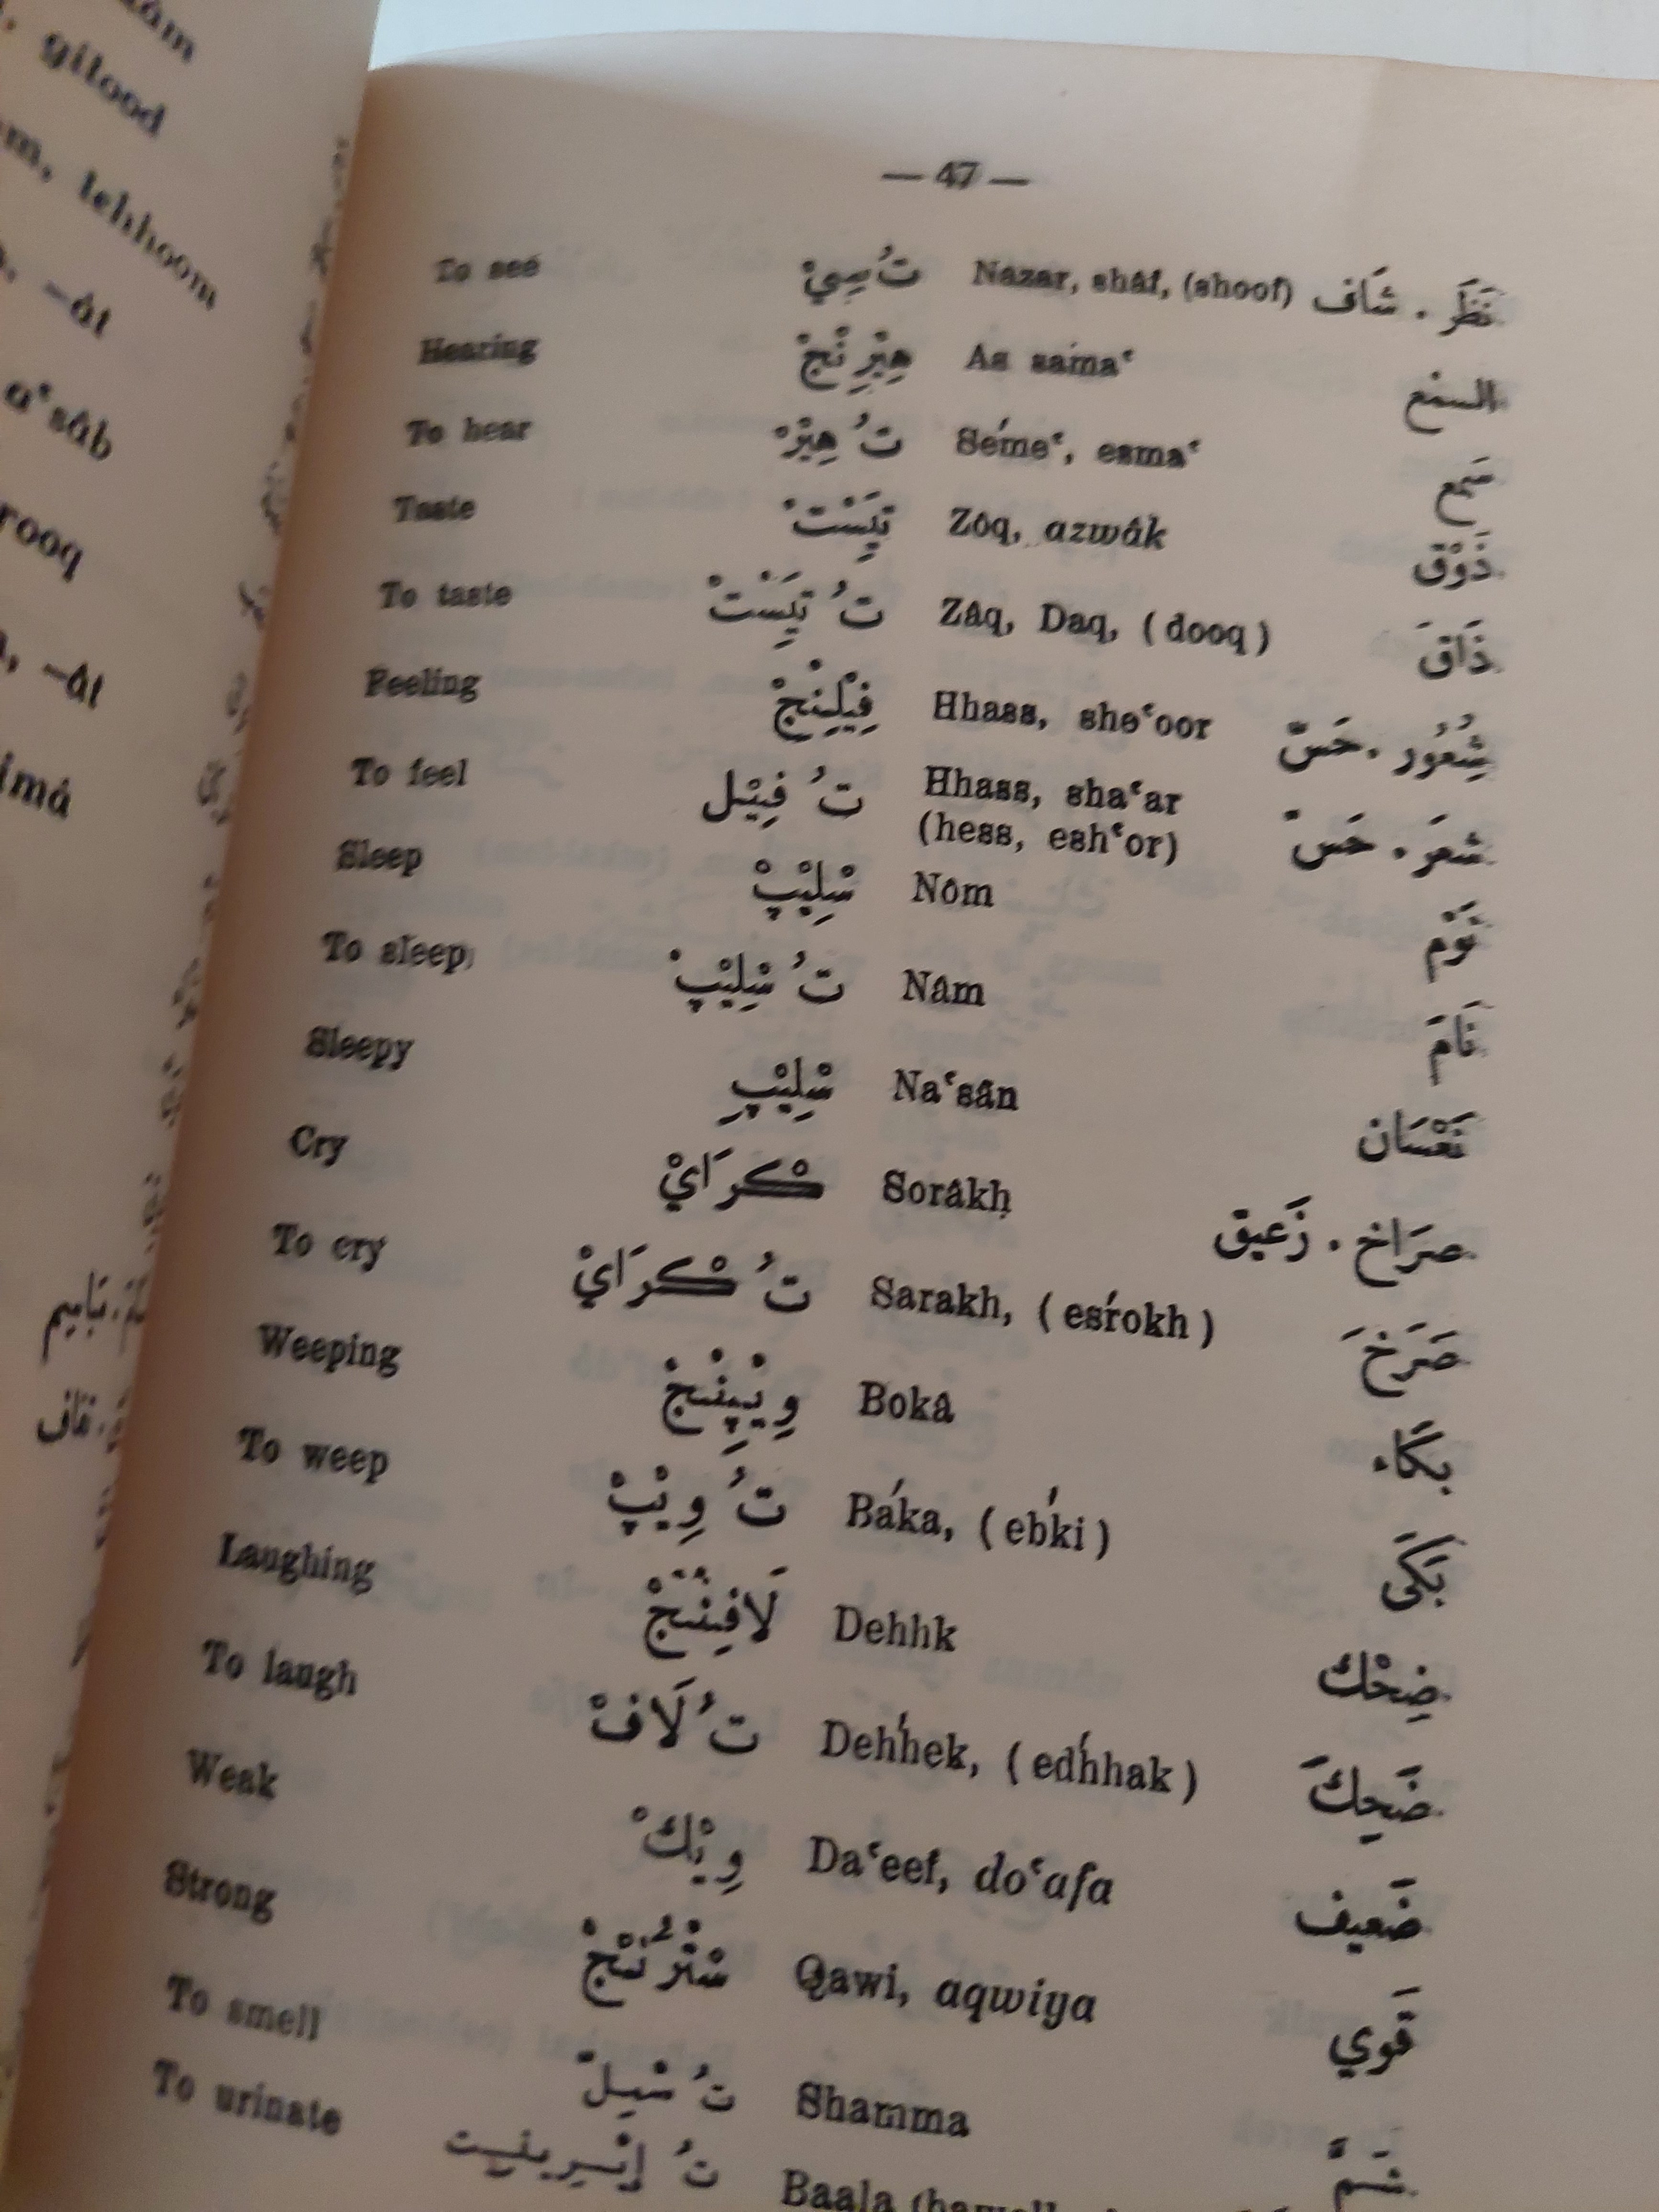 — 47 —
To see تُ سِيْ Nazar, shâf, (shoof) نَظَرَ . شَاف
Hearing هِيْرِنْجْ As sama‘ السمْع
To hear تُ هِيْرْ Séme‘, esma‘ سَمِع
Taste تِيَسْتْ Zôq, azwâk ذَوْق
To taste تُ تِيَسْتْ Zâq, Daq, (dooq) ذَاقَ
Feeling فِيْلِنْجْ Hhass, she‘oor شُِعُور . حَسّ
To feel تُ فِيْل Hhass, sha‘ar شعَرَ . حَسّ
(hess, esh‘or)
Sleep سْلِيْپْ Nôm نَوْم
To sleep تُ سْلِيْپْ Nâm نَامَ
Sleepy سْلِيْپِ Na‘sân نَعْسَان
Cry كْرَايْ Sorâkh صرَاخ . زَعيق
To cry تُ كْرَايْ Sarakh, (esŕokh) صَرَخَ
Weeping وِيْپِنْجْ Boka بكَاء
To weep تُ وِيْپْ Báka, (ebḱi) بَكَى
Laughing لَافِنْجْ Dehhk ضِحْك
To laugh تُ لَافْ Dehh́ek, (edh́hak) ضَحِكَ
Weak وِيْكْ Da‘eef, do‘afa ضَعيف
Strong سْتْرُنْجْ Qawi, aqwiya قَوي
To smell تُ سْمِيلّ Shamma شَمَّ
To urinate Baala
gilood
lehhoom
–ât
a‘sâb
rooq
–ât